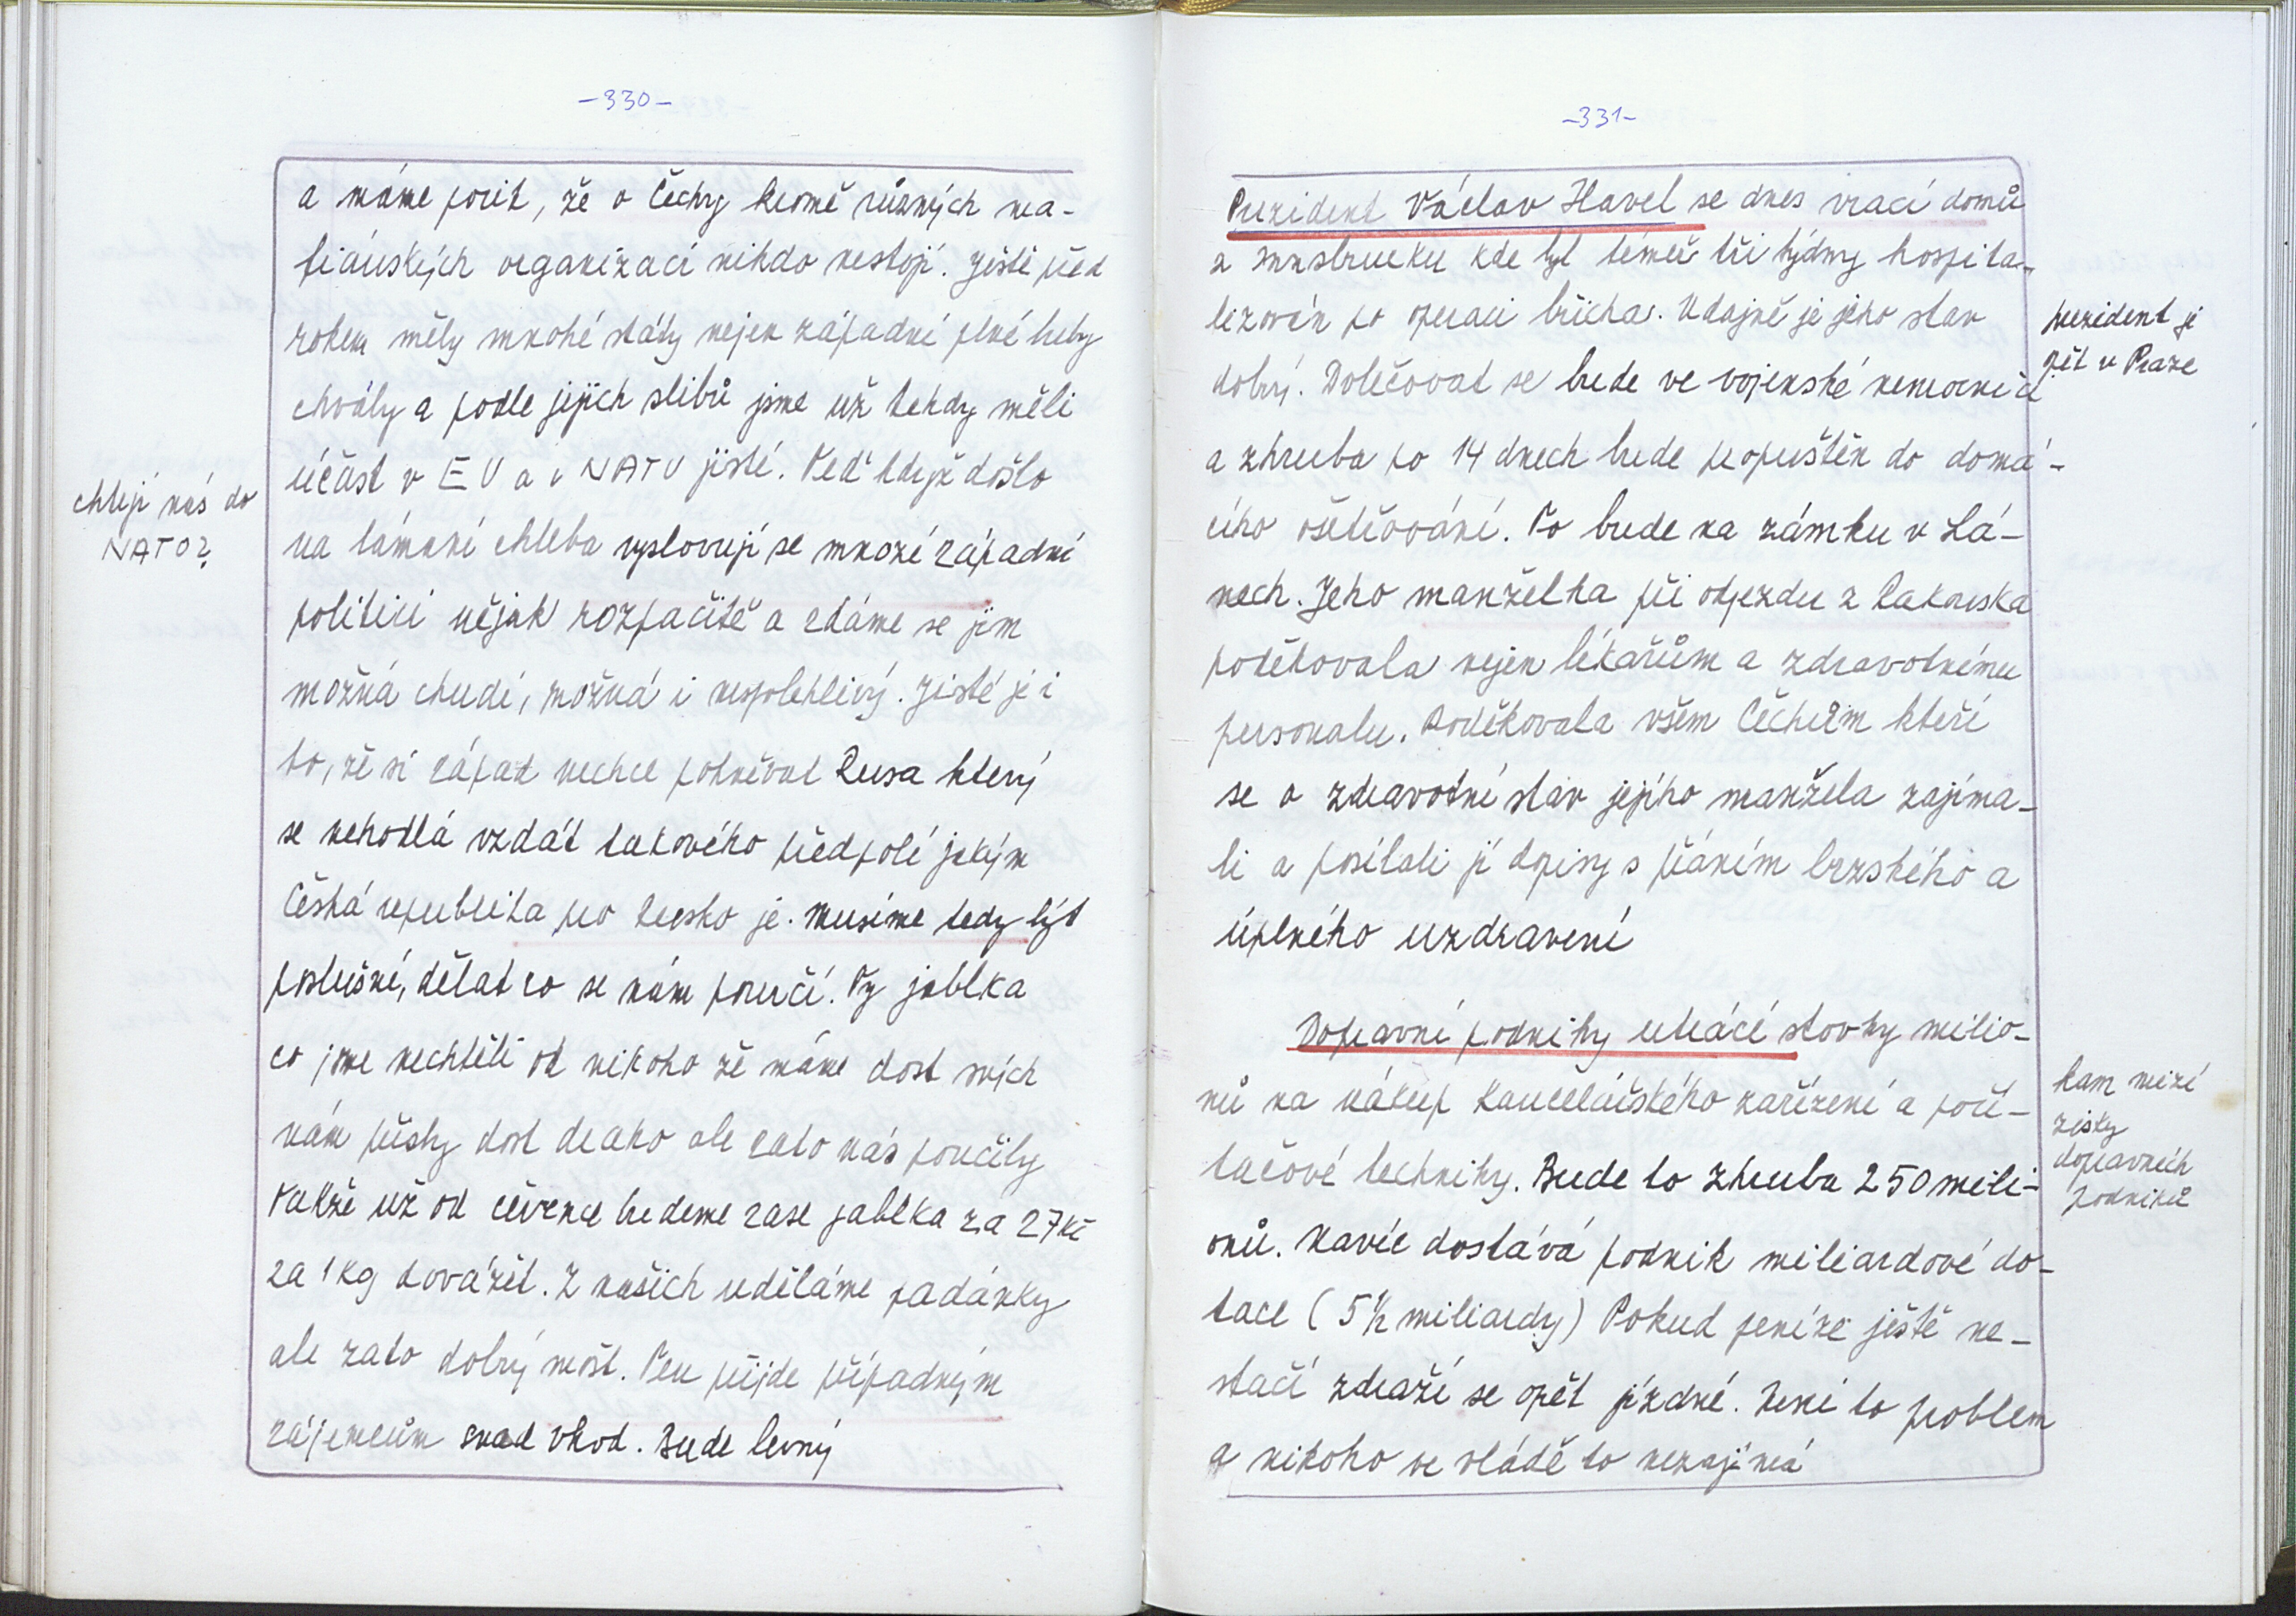 -330-
a máme pocit, že o Čechy kromě různých ma-
fiánských organizací nikdo nestojí. Ještě před
rokem měly mnohé státy nejen západní plné huby
chvály a podle jejich slibů jsme už tehdy měli
účast v EU a v NATU jisté. Teď když došlo
na lámání chleba vyslovují se mnozí západní
politici nějak rozpačitě a zdáme se jim
možná chudí, možná i nespolehlivý. Jisté je i
to, že si západ nechce pohněvat Rusa který
se nehodlá vzdát takového předpolí jakým
Česká republika pro Rusko je. Musíme tedy být
poslušní, dělat co se nám poručí. Ty jablka
co jsme nechtěli od nikoho že máme dost svých
nám přišly dost draho ale zato nás poučily
Takže už od července budeme zase jablka za 27 Kč
za 1 kg dovážet. Z našich uděláme padánky
ale zato dobrý mošt. Ten přijde případným
zájemcům snad vhod. Bude levný
chtějí nás do
NATO?
-331-
Prezident Václav Havel se dnes vrací domů
z Innsbrucku kde byl téměř tři týdny hospita-
lizován po operaci břicha. Údajně je jeho stav
dobrý. Doléčovat se bude ve vojenské nemocnici
a zhruba po 14 dnech bude propuštěn do domá-
cího ošetřování. To bude na zámku v Lá-
nech. Jeho manželka při odjezdu z Rakouska
poděkovala nejen lékařům a zdravotnímu
personalu. Poděkovala všem Čechům kteří
se o zdravotní stav jejího manžela zajíma-
li a posílali jí dopisy s přáním brzského a
úplného uzdravení
prezident je
opět v Praze
Dopravní podniky utrácí stovky milio-
nů na nákup kancelářského zařízení a počí-
tačové techniky. Bude to zhruba 250 mili-
onů. Navíc dostává podnik miliardové do-
tace (5 1/2 miliardy) Pokud peníze ještě ne-
stačí zdraží se opět jízdné. Není to problem
a nikoho ve vládě to nezajímá
kam mizí
zisky
dopravních
podniků